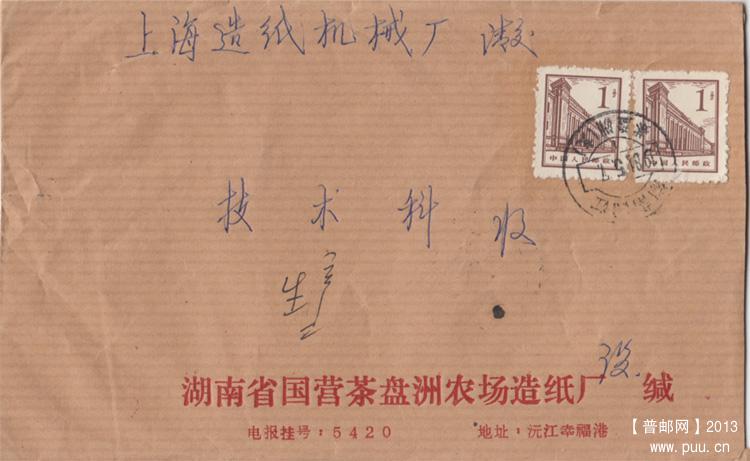 上海造纸机械厂
1分 1分
中国人民邮政 中国人民邮政
技术科收
生产
湖南省国营茶盘洲农场造纸厂 缄
电报挂号：5420 地址：沅江幸福港
【普邮网】2013
www.puu.cn